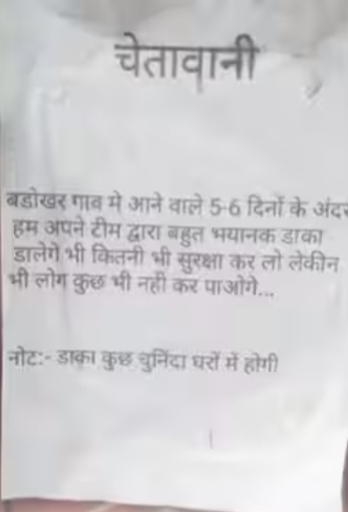 चेतावानी
बडोखर गाव मे आने वाले 5-6 दिनों के अंदर
हम अपने टीम द्वारा बहुत भयानक डाका
डालेगे भी कितनी भी सुरक्षा कर लो लेकीन
भी लोग कुछ भी नही कर पाओगे...
नोट:- डाका कुछ चुनिंदा घरों में होगी